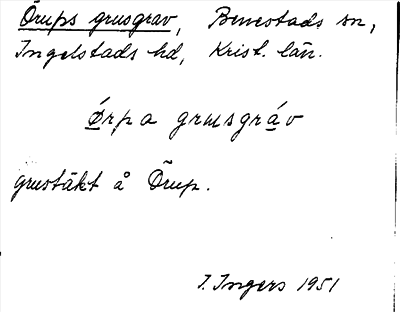 Örups grusgrav, Benestads sn,
Ingelstads hd, Krist. län.
Ørpa grusgráv
grustäkt å Örup.
I. Ingers 1951